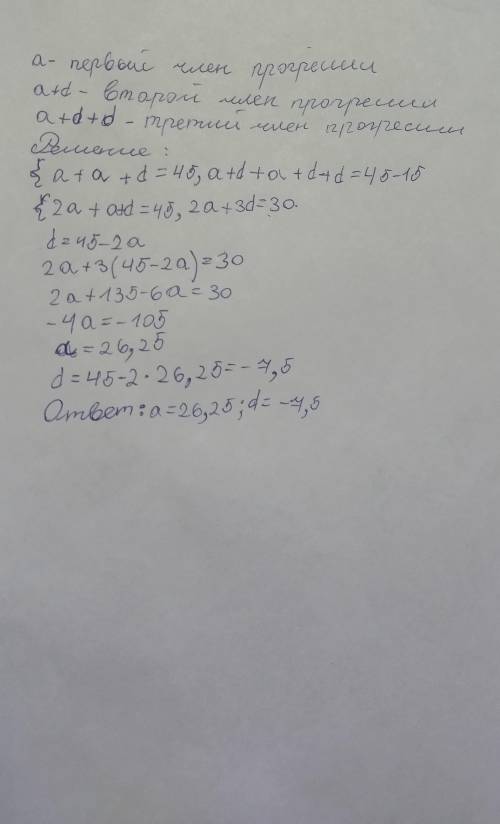 a - первый член прогресии
a+d - второй член прогресии
a+d+d - третий член прогресии
Решение:
{ a+a+d=45, a+d+a+d+d=45-15
{ 2a+a+d=45, 2a+3d=30.
d=45-2a
2a+3(45-2a)=30
2a+135-6a=30
-4a=-105
a=26,25
d=45-2·26,25=-7,5
Ответ: a=26,25; d=-7,5